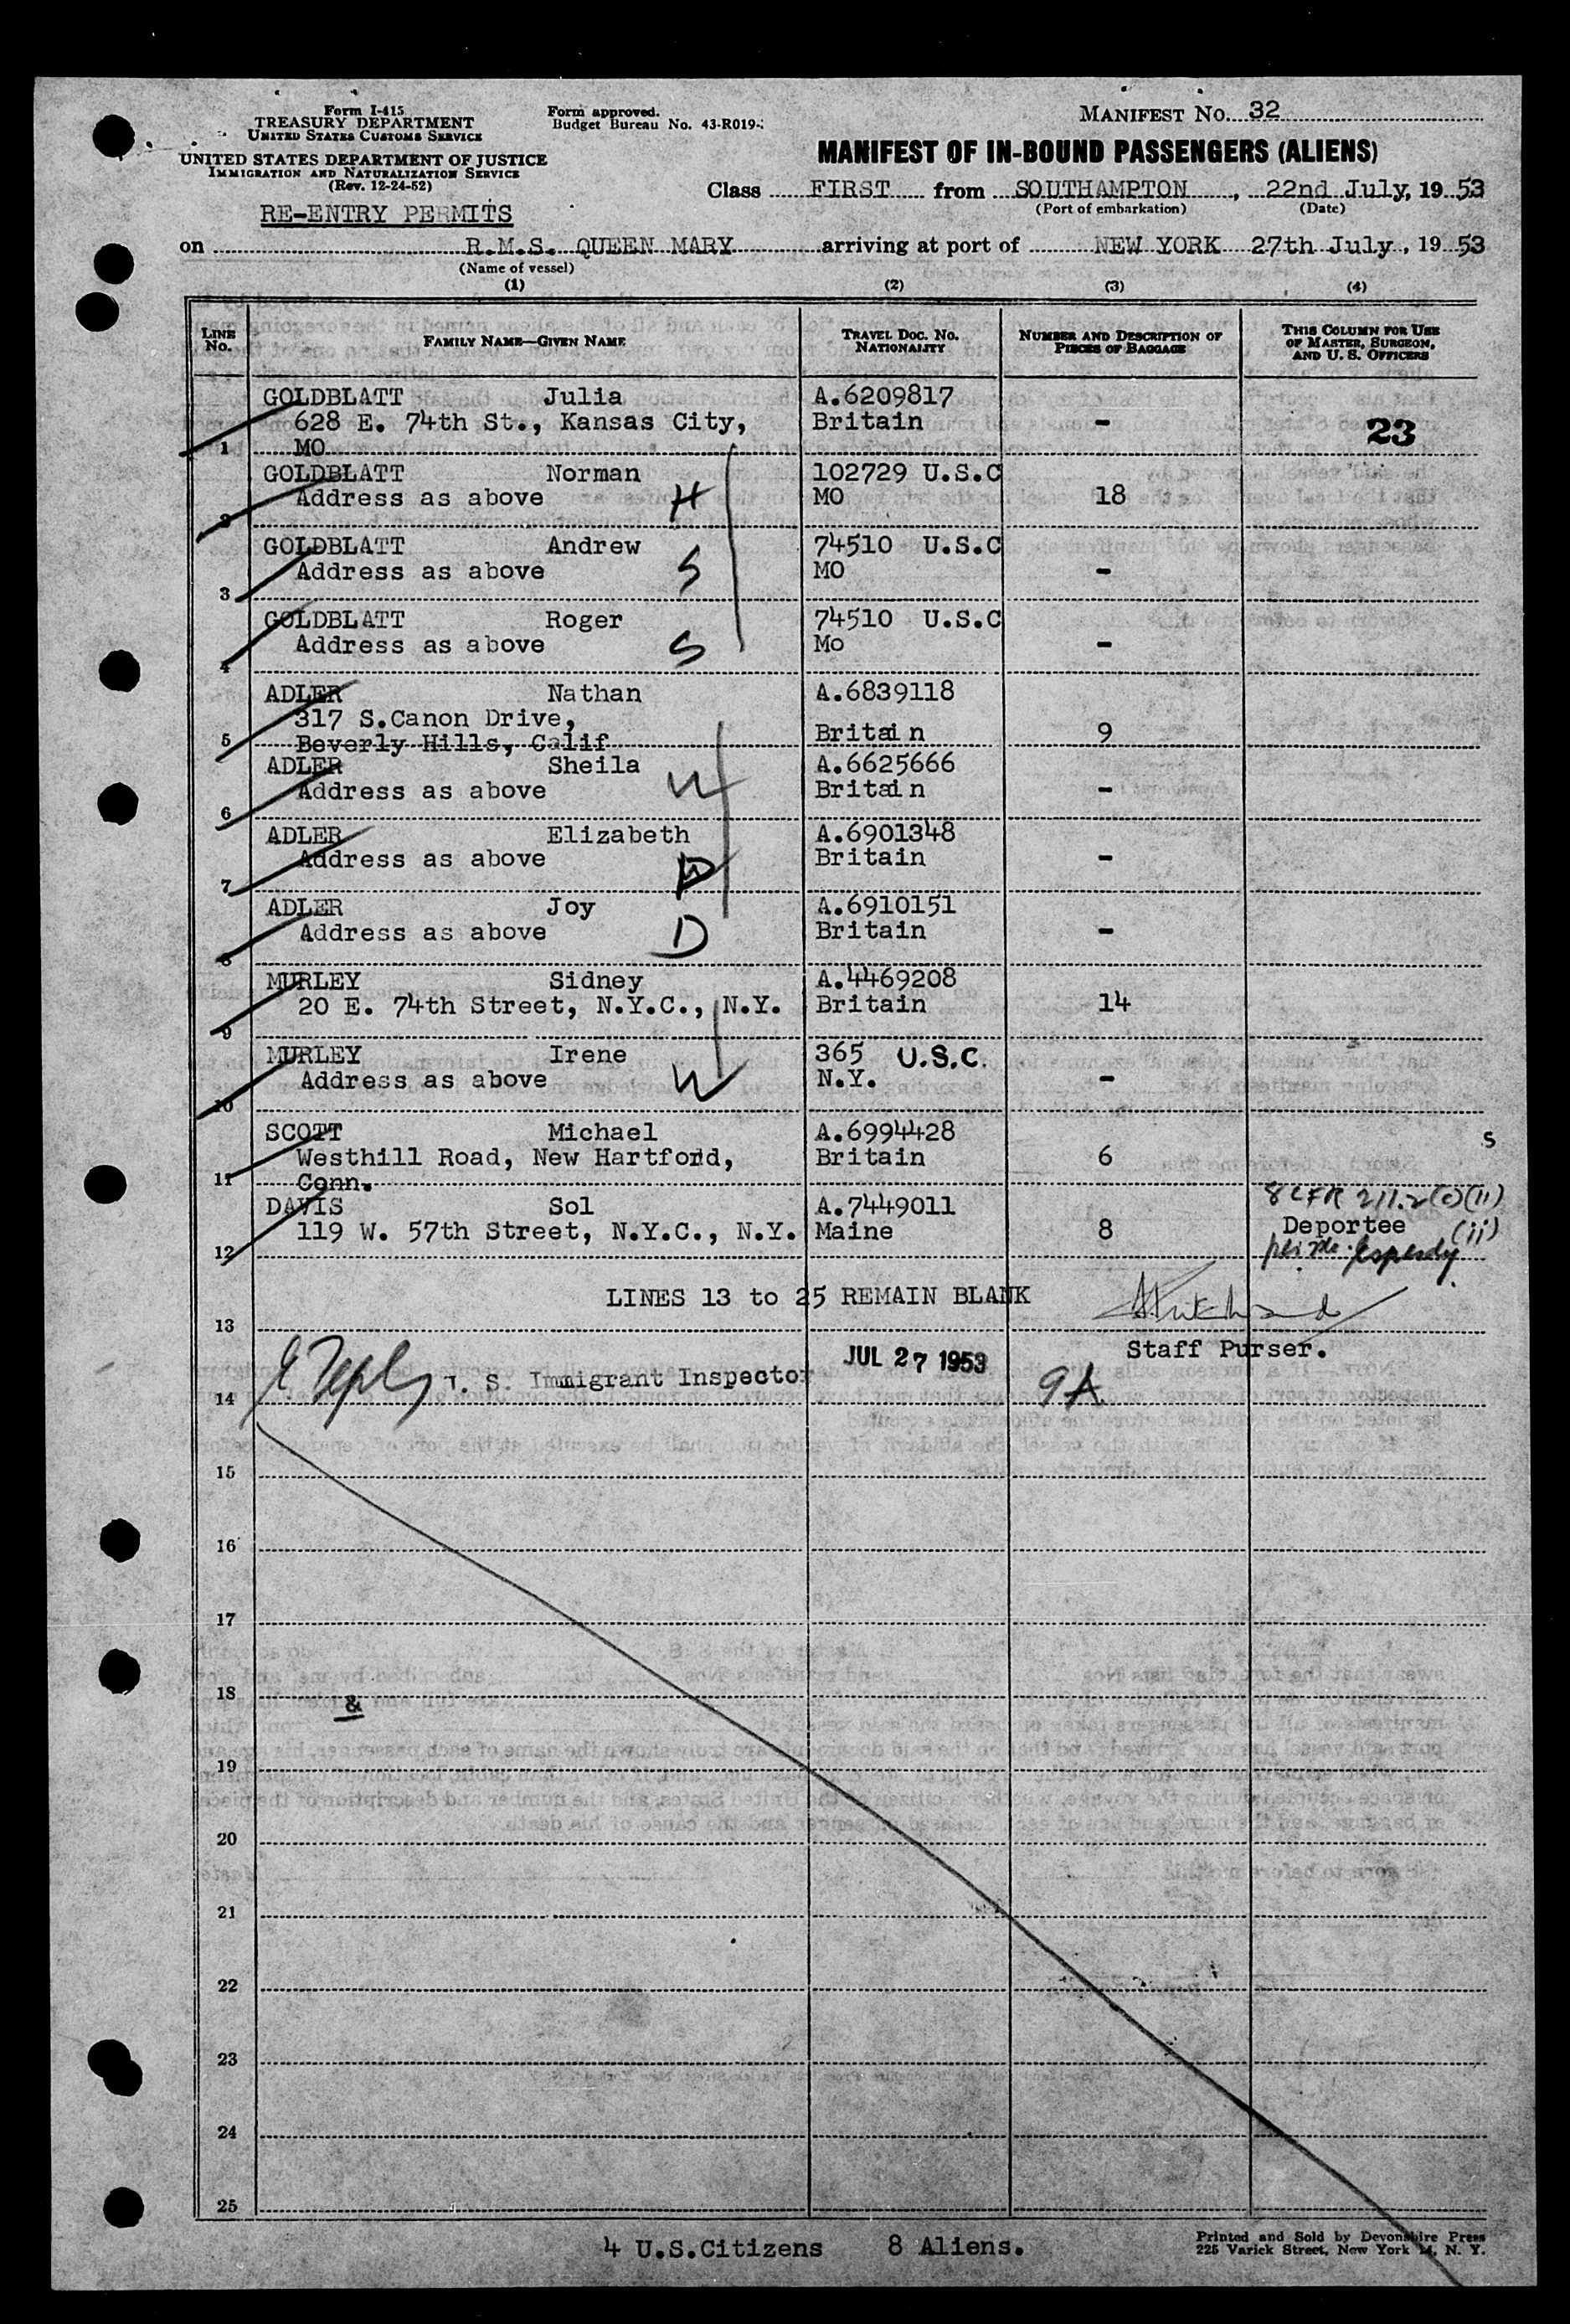 Form I-415
TREASURY DEPARTMENT
UNITED STATES CUSTOMS SERVICE
UNITED STATES DEPARTMENT OF JUSTICE
IMMIGRATION AND NATURALIZATION SERVICE
(Rev. 12-24-52)
RE-ENTRY PERMITS
Form approved.
Budget Bureau No. 43-R019-
MANIFEST NO. 32
MANIFEST OF IN-BOUND PASSENGERS (ALIENS)
Class FIRST from SOUTHAMPTON, 22nd July, 19 53
(Port of embarkation) (Date)
on R.M.S. QUEEN MARY arriving at port of NEW YORK 27th July, 19 53
(Name of vessel)
(1) (2) (3) (4)
LINE No. FAMILY NAME—GIVEN NAME TRAVEL DOC. NO. NATIONALITY NUMBER AND DESCRIPTION OF PIECES OF BAGGAGE THIS COLUMN FOR USE OF MASTER, SURGEON, AND U. S. OFFICERS
GOLDBLATT Julia A.6209817
628 E. 74th St., Kansas City, Britain - 23
1 MO
GOLDBLATT Norman 102729 U.S.C
Address as above H MO 18
2
GOLDBLATT Andrew 74510 U.S.C
Address as above S MO -
3
GOLDBLATT Roger 74510 U.S.C
Address as above S Mo -
4
ADLER Nathan A.6839118
317 S.Canon Drive,
5 Beverly Hills, Calif Britain 9
ADLER Sheila A.6625666
Address as above W Britain -
6
ADLER Elizabeth A.6901348
Address as above D Britain -
7
ADLER Joy A.6910151
Address as above D Britain -
8
MURLEY Sidney A.4469208
20 E. 74th Street, N.Y.C., N.Y. Britain 14
9
MURLEY Irene 365 U.S.C.
Address as above W N.Y. -
10
SCOTT Michael A.6994428 S
Westhill Road, New Hartford, Britain 6
11 Conn.
DAVIS Sol A.7449011 8 CFR 211.2(c)(ii)
119 W. 57th Street, N.Y.C., N.Y. Maine 8 Deportee (ii)
12
LINES 13 to 25 REMAIN BLANK
13
Staff Purser.
U. S. Immigrant Inspector JUL 27 1953 9A
14
15
16
17
18 &
19
20
21
22
23
24
25
4 U.S.Citizens 8 Aliens.
Printed and Sold by Devonshire Press
225 Varick Street, New York 14, N. Y.